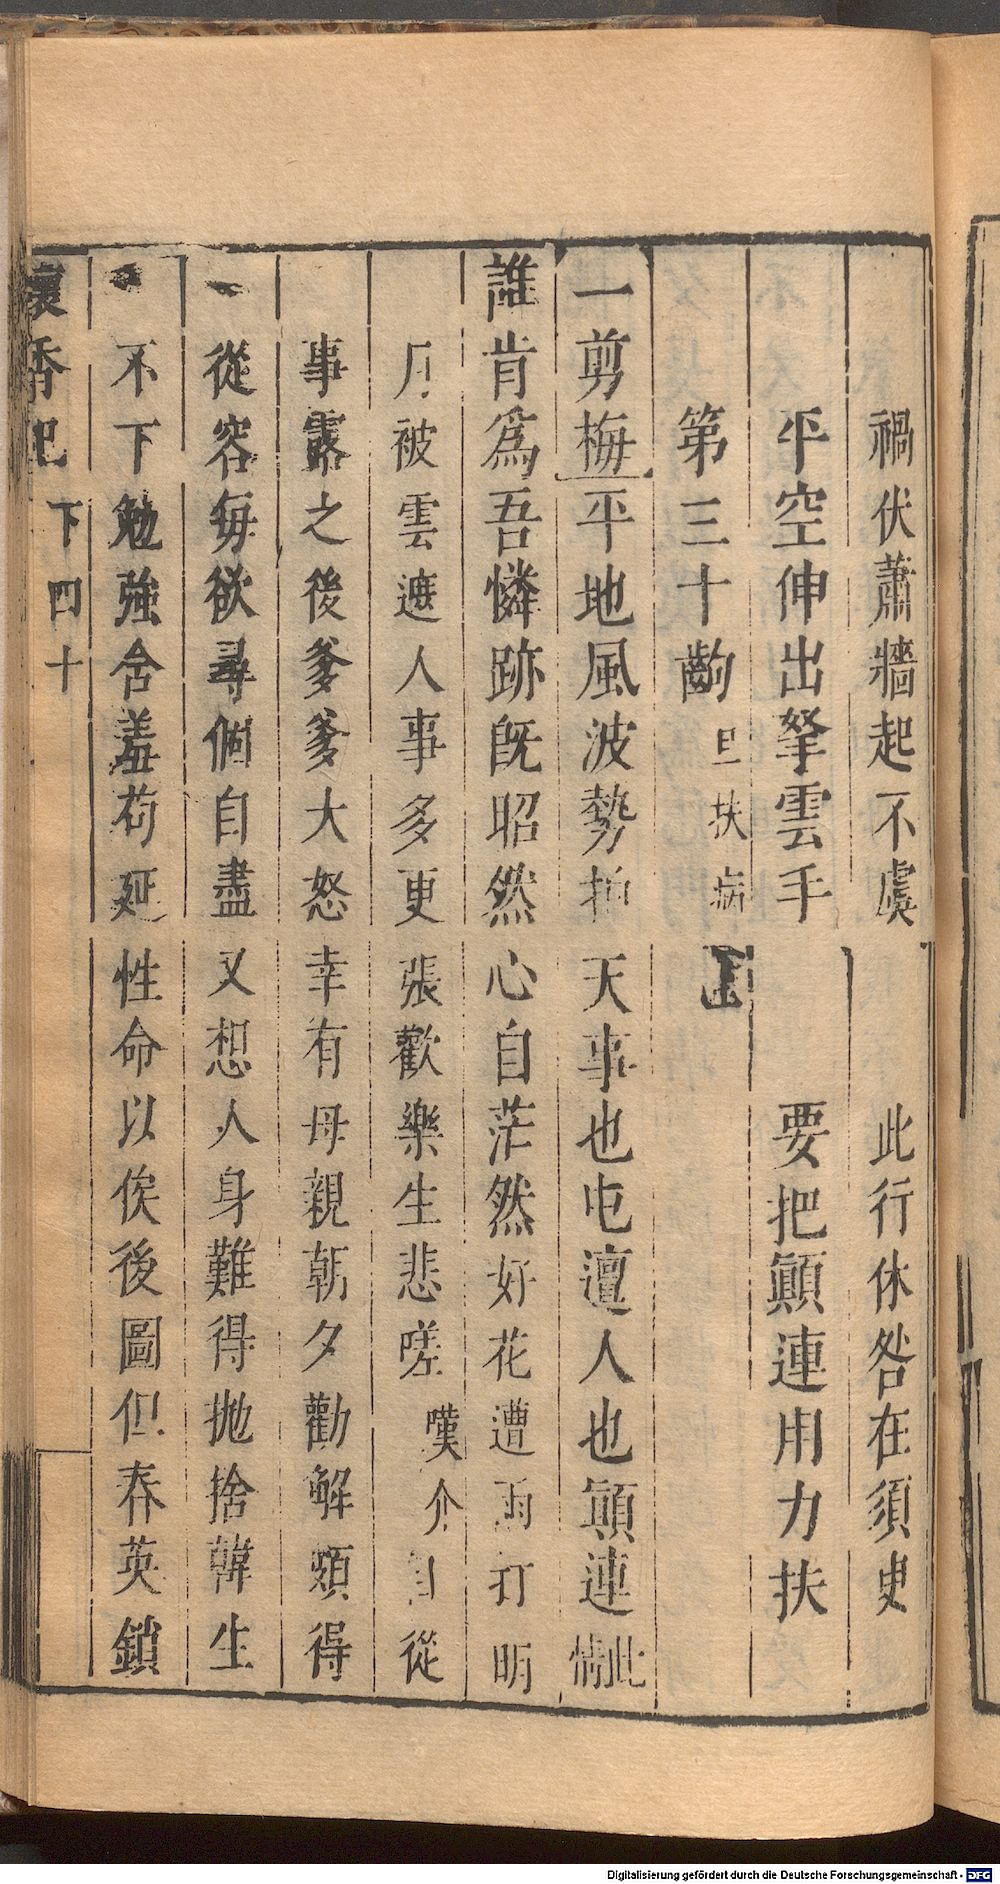 禍伏蕭牆起不虞　此行休咎在須臾
平空伸出拏雲手　要把顛連用力扶
第三十齣 旦扶病上
一剪梅平地風波勢拍天事也屯邅人也顛連此情
誰肯爲吾憐跡既昭然心自茫然好花遭雨打明
月被雲遮人事多更張歡樂生悲嗟嘆介自從
事露之後爹爹大怒幸有母親朝夕勸解頗得
從容每欲尋個自盡又想人身難得拋捨韓生
不下勉強含羞苟延性命以俟後圖但春英鎖
懷香記 下 四十
Digitalisierung gefördert durch die Deutsche Forschungsgemeinschaft - DFG